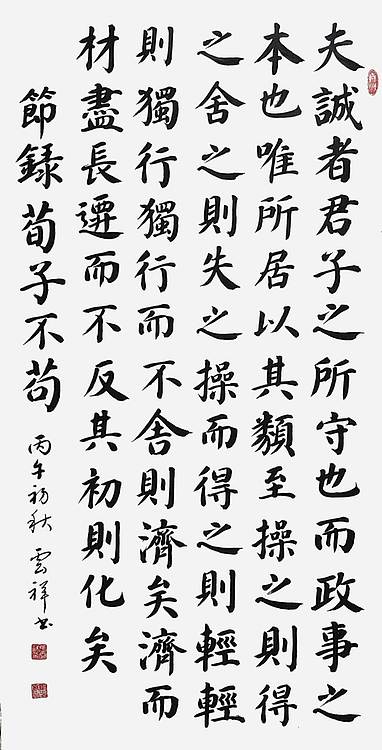 夫誠者君子之所守也而政事之
本也唯所居以其類至操之則得
之舍之則失之操而得之則輕輕
則獨行獨行而不舍則濟矣濟而
材盡長遷而不反其初則化矣
節録荀子不苟 丙午初秋 雲祥书